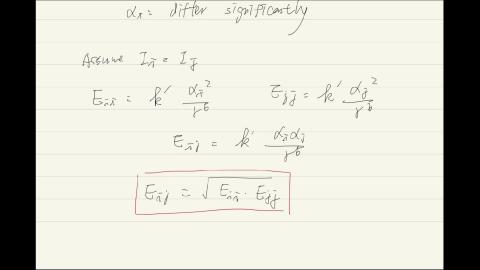 αi = differ significantly
Assume Ii = Ij
Eii = k' αi² / r⁶    Ejj = k' αj² / r⁶
Eij = k' αiαj / r⁶
Eij = √(Eii · Ejj)